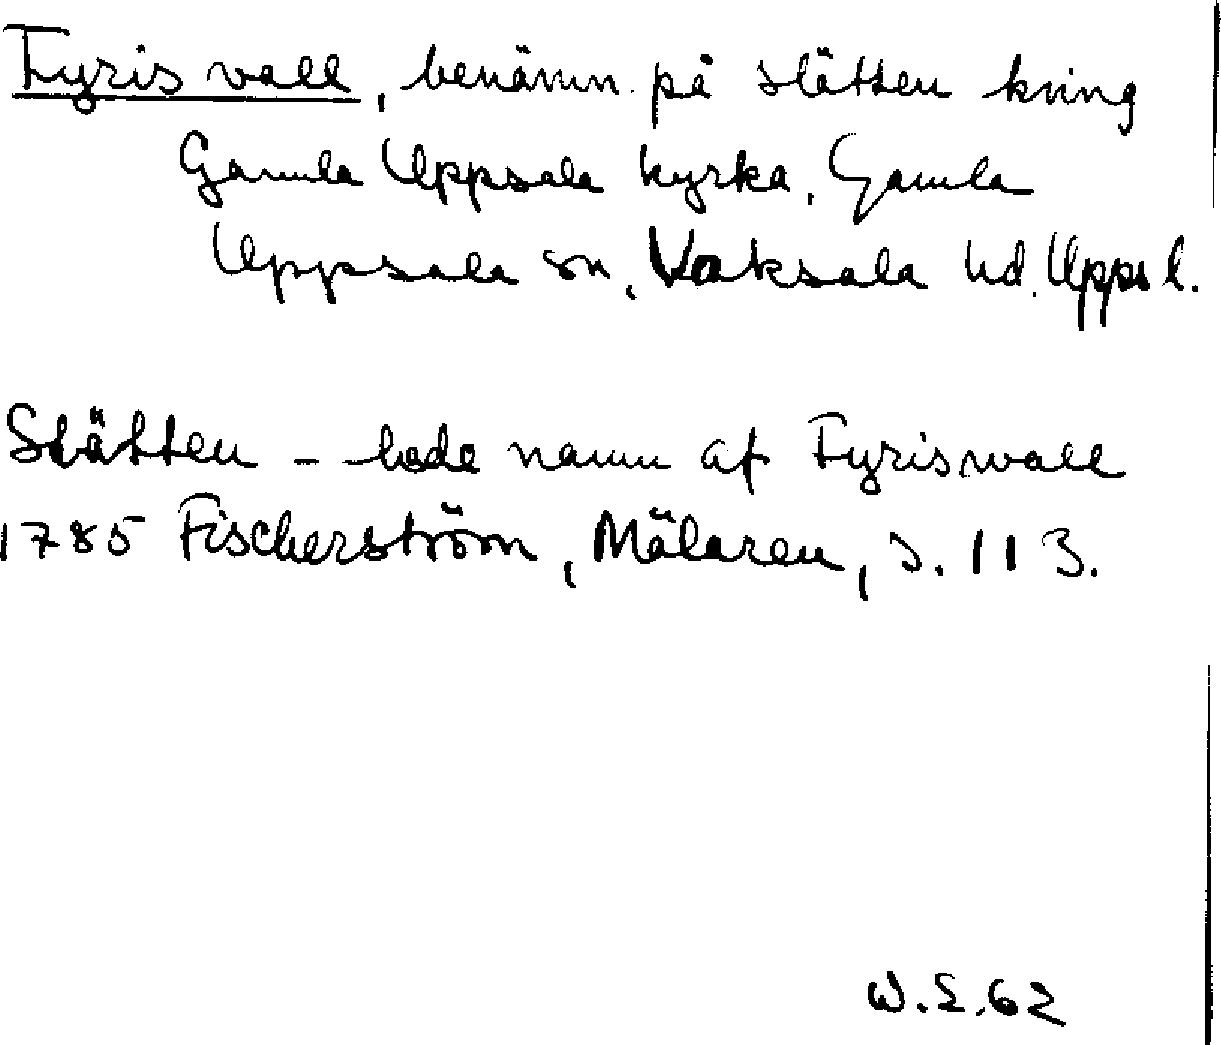 Fyris vall, benämn. på slätten kring
Gamla Uppsala kyrka, Gamla
Uppsala sn, Vaksala hd. Upps l.
Slätten – hade namn af Fyriswall
1785 Fischerström, Mälaren, s. 113.
W.S.62